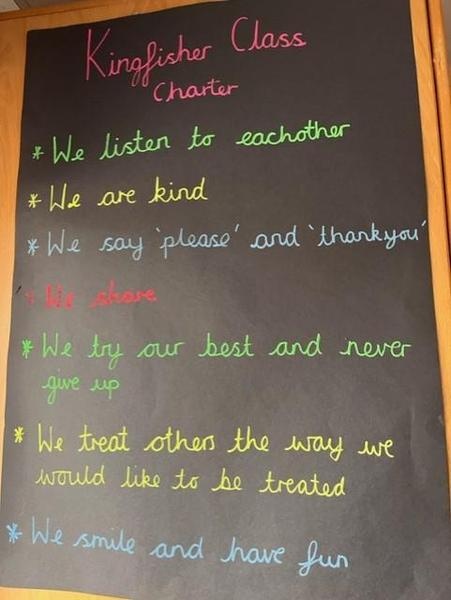 Kingfisher Class
Charter
* We listen to eachother
* We are kind
* We say 'please' and 'thankyou'
* We share
* We try our best and never
give up
* We treat others the way we
would like to be treated
* We smile and have fun